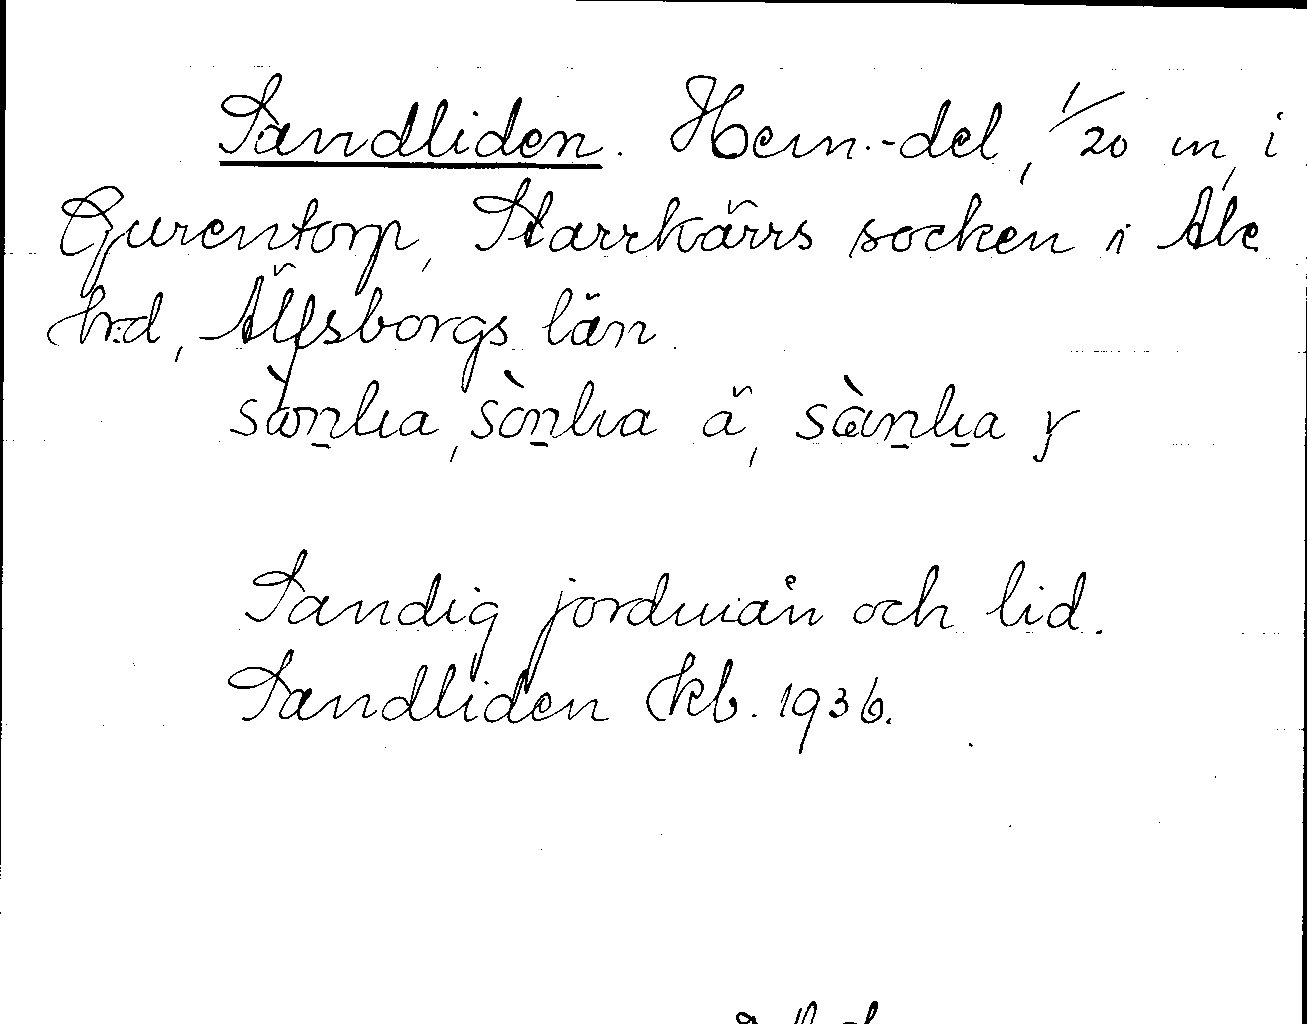 Sandliden. Hem.-del, 1/20 m, i
Gurentorp, Starrkärrs socken i Ale
h:d, Älfsborgs län.
sòn̠lıa, sòn̠lıa ä, sæ̀n̠lı̠a y
Sandig jordmån och lid.
Sandliden Kb. 1936.